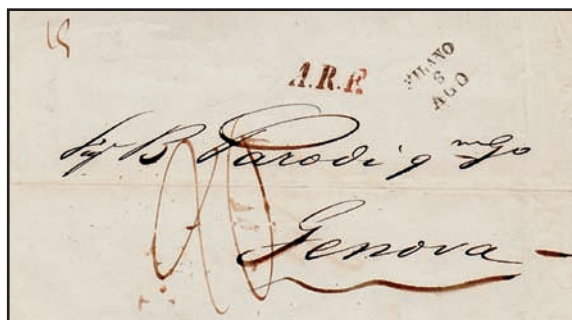 A.R.F.
MILANO
6
AGO
Sig. B Parodi q m Go
Genova